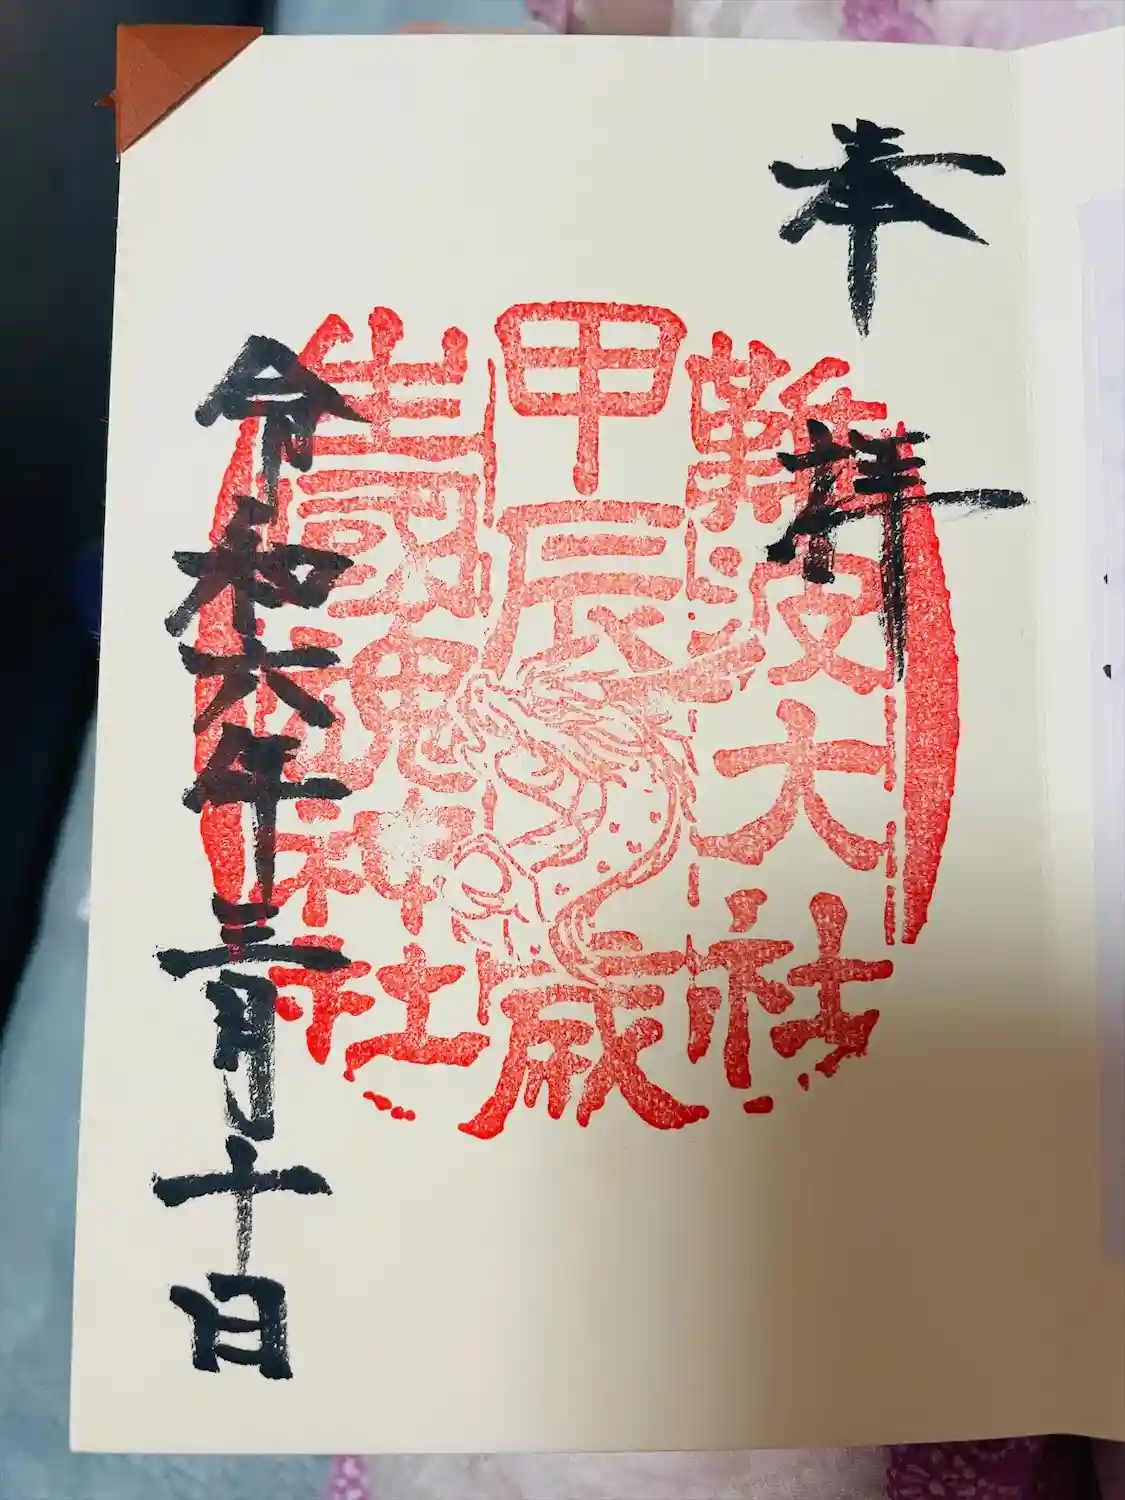 奉拝
難波大社
甲辰歳
生國魂神社
令和六年三月十日